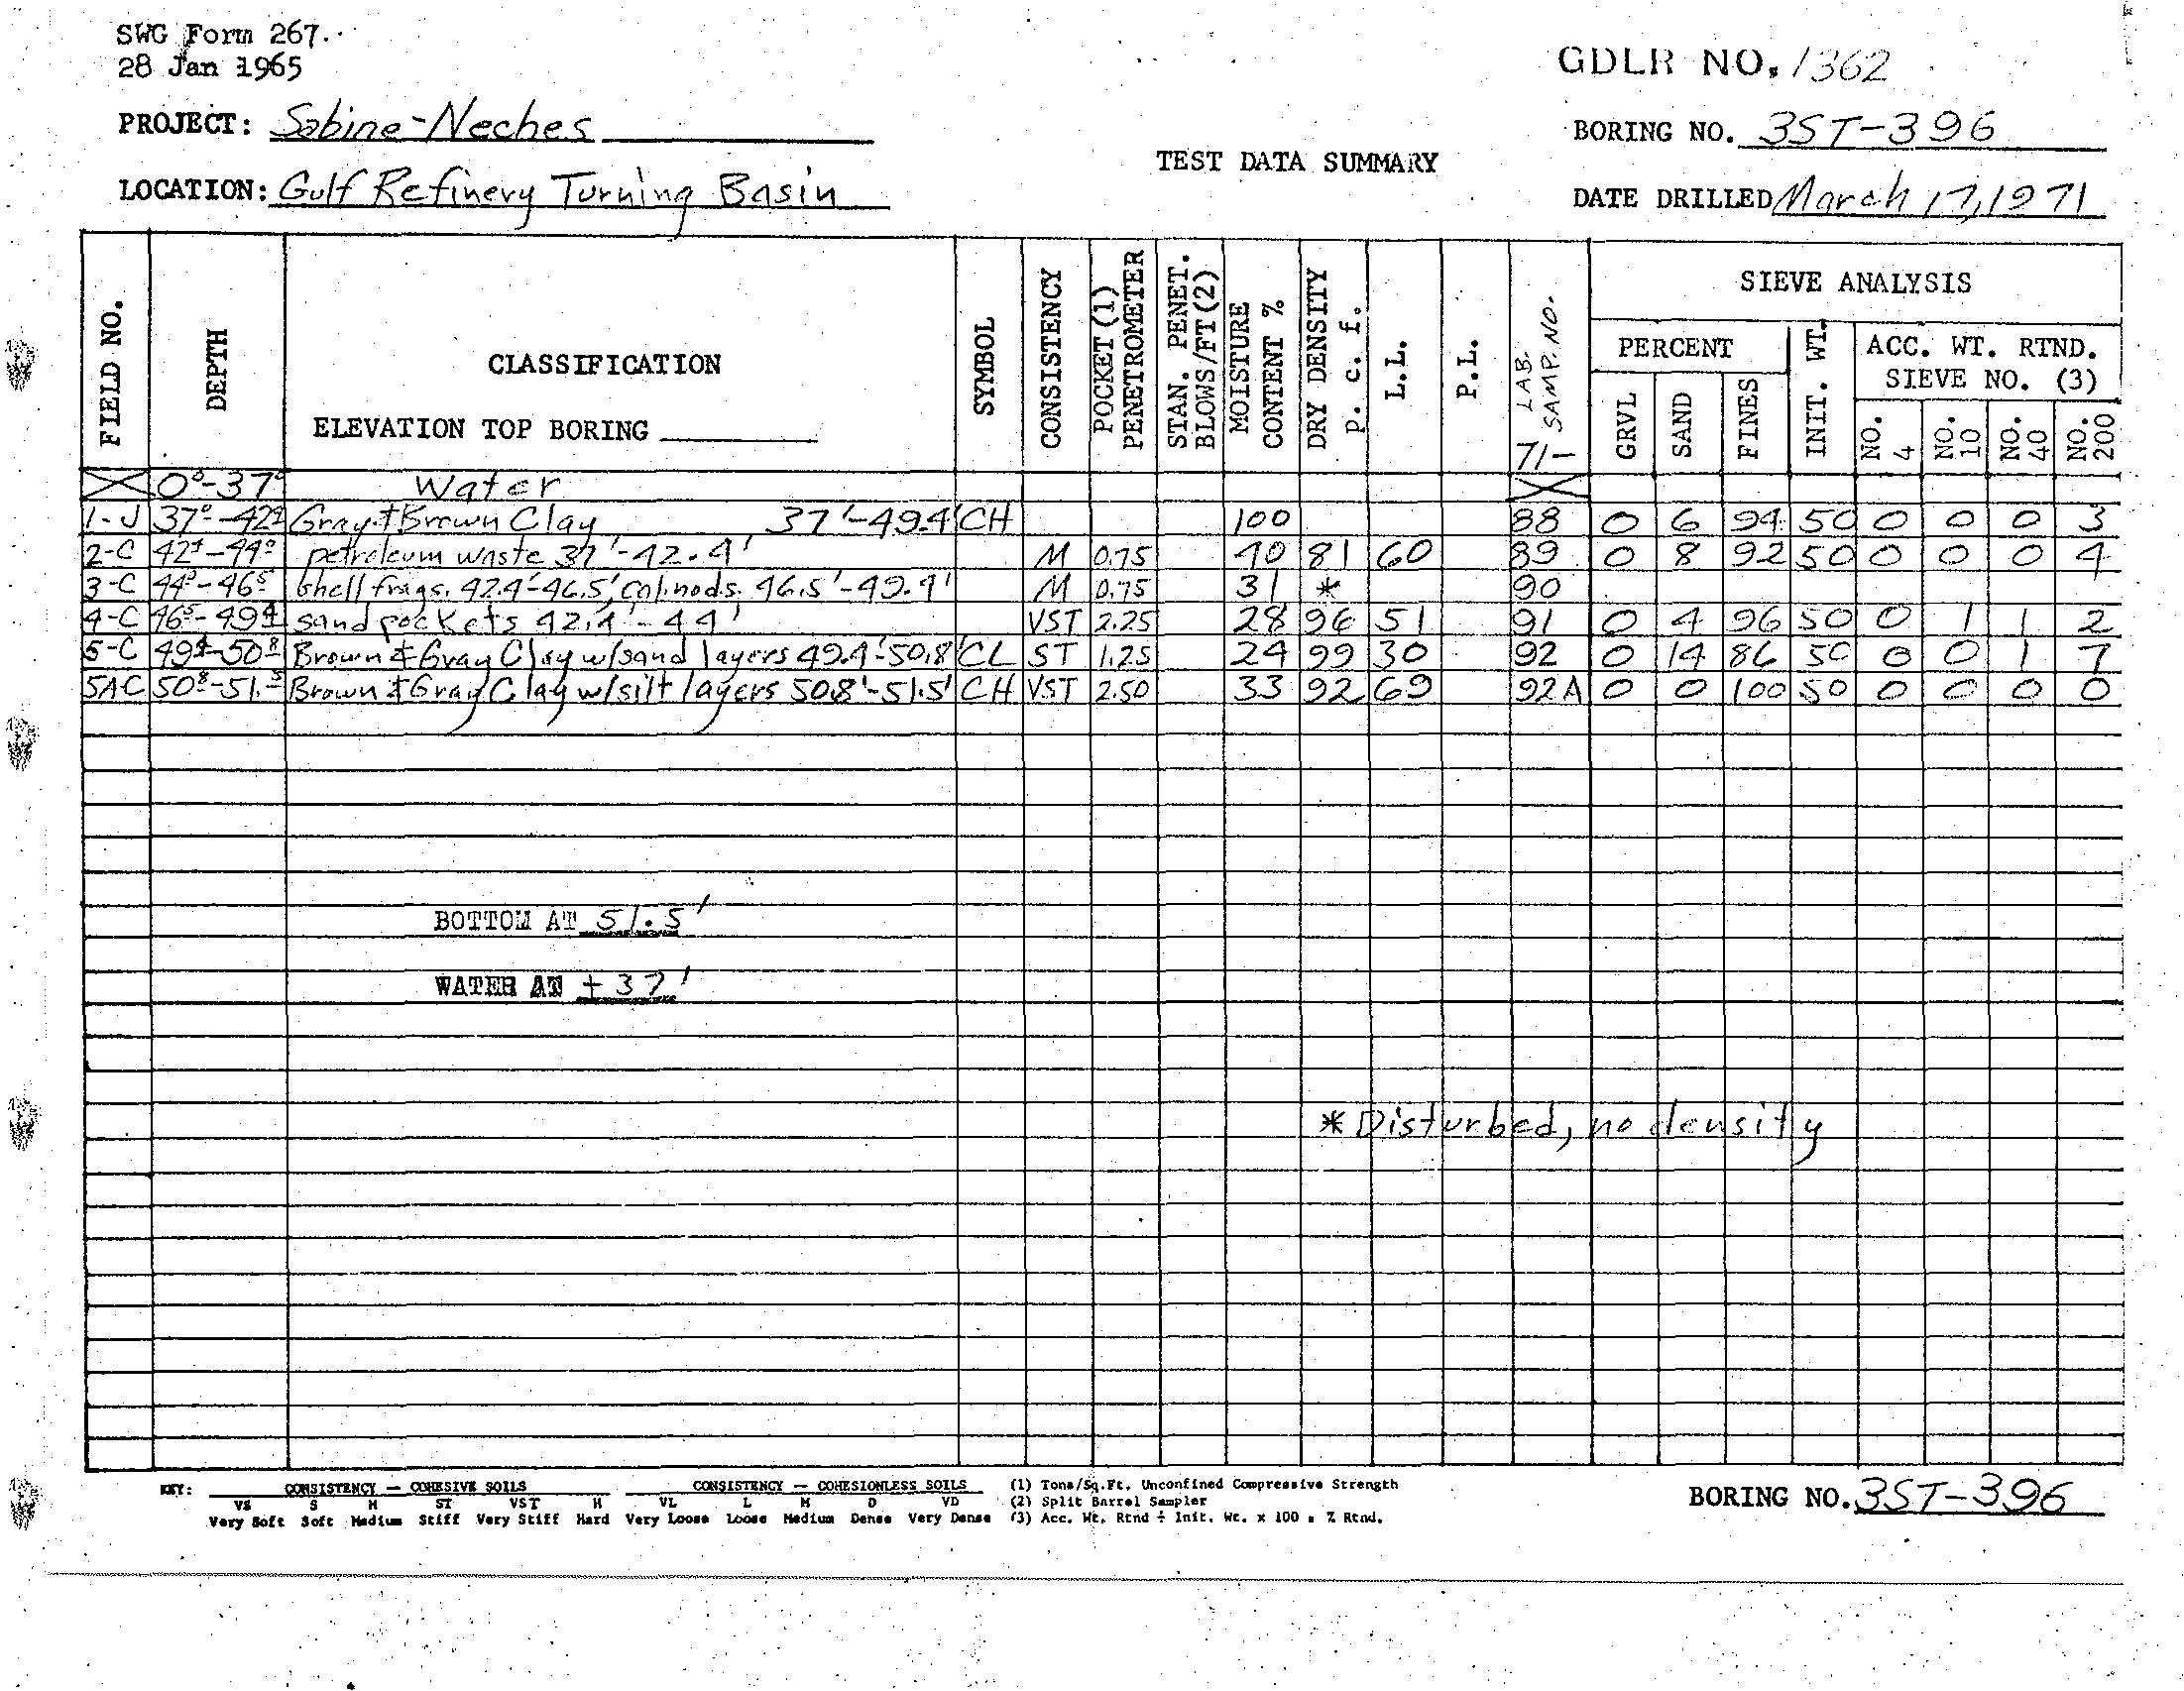 SWG Form 267
28 Jan 1965
GDLR NO. 1362
PROJECT: Sabine-Neches
BORING NO. 3ST-396
TEST DATA SUMMARY
LOCATION: Gulf Refinery Turning Basin
DATE DRILLED March 17, 1971
FIELD NO. DEPTH CLASSIFICATION SYMBOL CONSISTENCY POCKET (1) PENETROMETER STAN. PENET. BLOWS/FT (2) MOISTURE CONTENT % DRY DENSITY p. c. f. L.L. P.L. LAB. SAMP. NO. SIEVE ANALYSIS
PERCENT INIT. WT. ACC. WT. RTND.
SIEVE NO. (3)
ELEVATION TOP BORING 71- GRVL SAND FINES NO. 4 NO. 10 NO. 40 NO. 200
0.0-37.0 Water
1-J 37.0-42.4 Gray & Brown Clay 37'-49.4' CH 100 88 0 6 94 50 0 0 0 3
2-C 42.4-44.0 petroleum waste 37'-42.4' M 0.75 40 81 60 89 0 8 92 50 0 0 0 4
3-C 44.0-46.5 shell frags. 42.4'-46.5', cal. nods. 46.5'-49.4' M 0.75 31 * 90
4-C 46.5-49.4 sand pockets 42.4'-44' VST 2.25 28 96 51 91 0 4 96 50 0 1 1 2
5-C 49.4-50.8 Brown & Gray Clay w/sand layers 49.4'-50.8' CL ST 1.25 24 99 30 92 0 14 86 50 0 0 1 7
5AC 50.8-51.5 Brown & Gray Clay w/silt layers 50.8'-51.5' CH VST 2.50 33 92 69 92A 0 0 100 50 0 0 0 0
BOTTOM AT 51.5'
WATER AT +37'
* Disturbed, no density
KEY: CONSISTENCY — COHESIVE SOILS CONSISTENCY — COHESIONLESS SOILS (1) Tons/Sq.Ft. Unconfined Compressive Strength
VS S M ST VST H VL L M D VD (2) Split Barrel Sampler
Very Soft Soft Medium Stiff Very Stiff Hard Very Loose Loose Medium Dense Very Dense (3) Acc. Wt. Rtnd ÷ Init. Wt. x 100 = % Rtnd.
BORING NO. 3ST-396